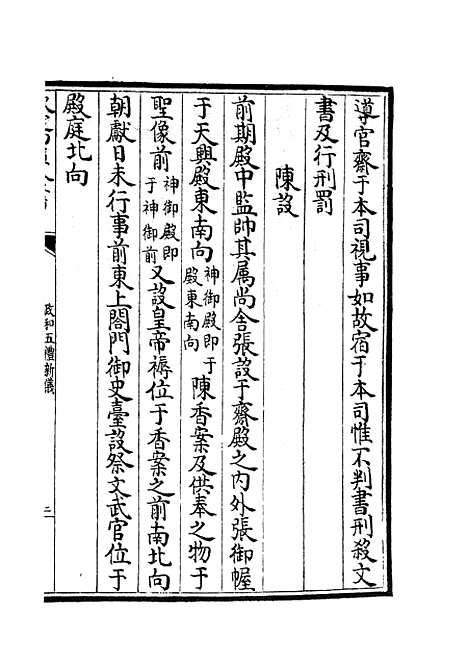 導官齋于本司視事如故宿于本司惟不判書刑殺文
書及行刑罰
陳設
前期殿中監帥其属尚舎張設于齋殿之内外張御幄
于天興殿東南向神御殿即于殿東南向陳香案及供奉之物于
聖像前神御殿即于神御前又設皇帝褥位于香案之前南北向
朝獻日未行事前東上閤門御史臺設祭文武官位于
殿庭北向
政和五禮新儀
二